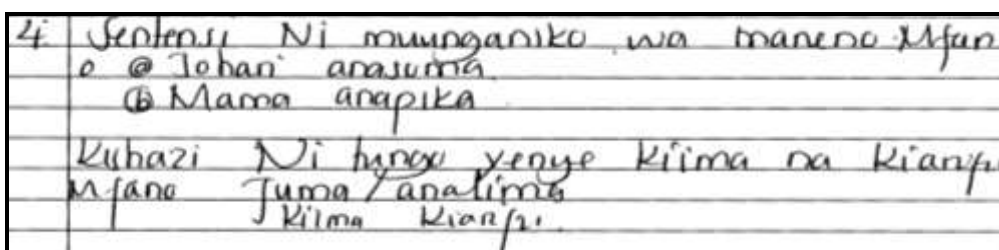 4. Sentensi Ni muunganiko wa maneno Mfan
o (a) Johari anasoma
(b) Mama anapika
Kuhazi Ni tungo yenye kiima na kiarifu
Mfano Juma / analima
kiima kiarifu.